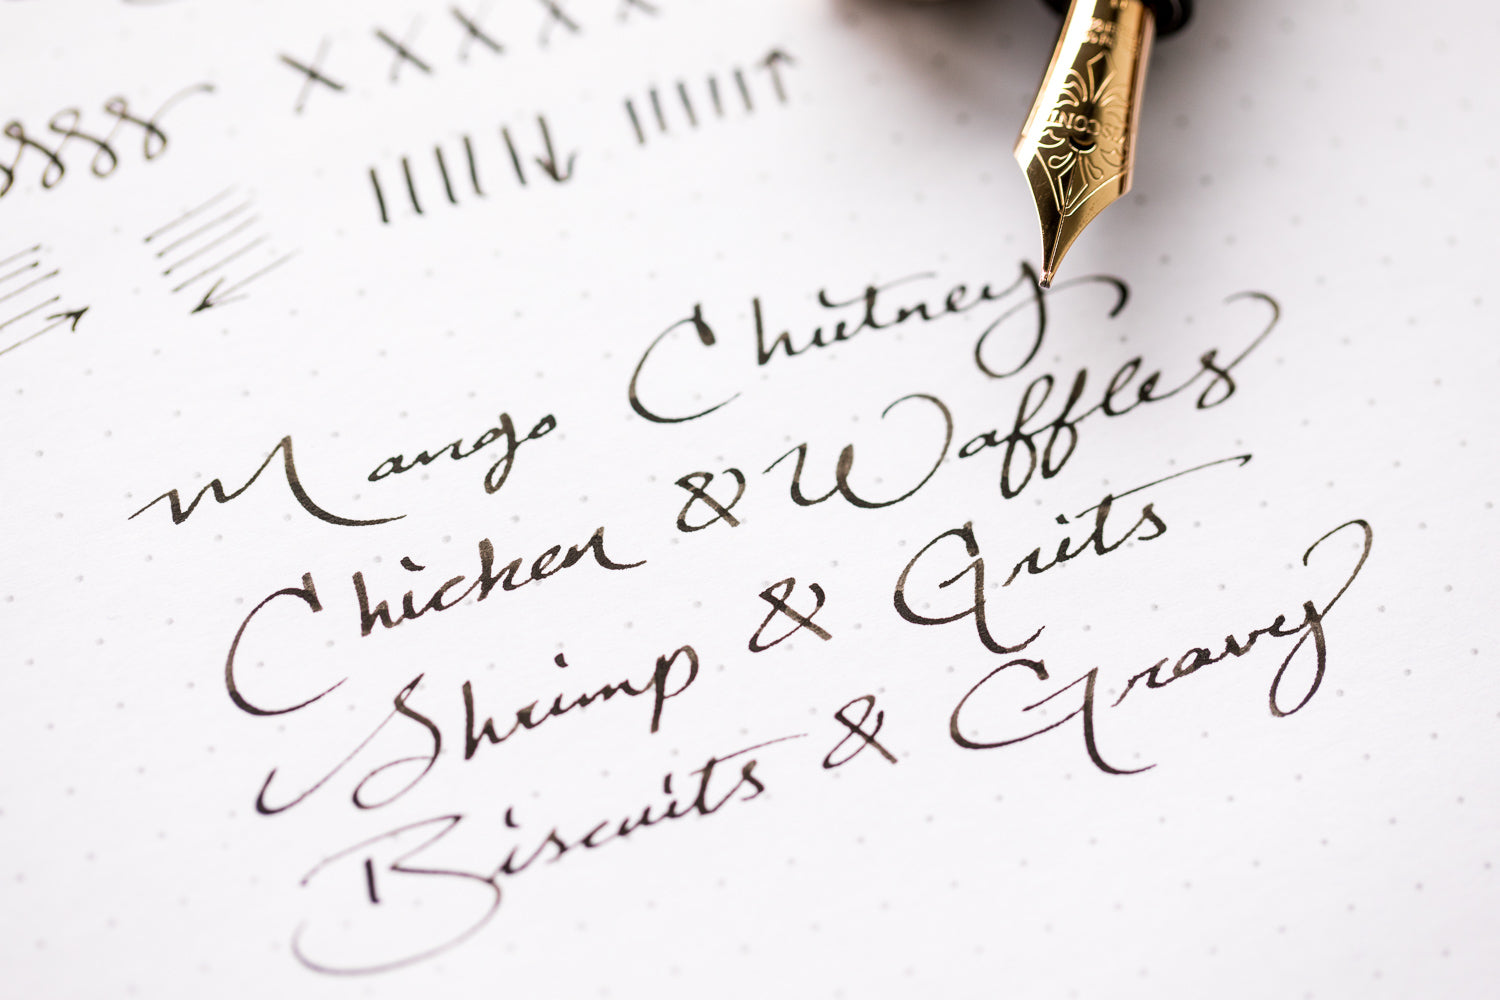 x x x x x
Mango Chutney
Chicken & Waffles
Shrimp & Grits
Biscuits & Gravy